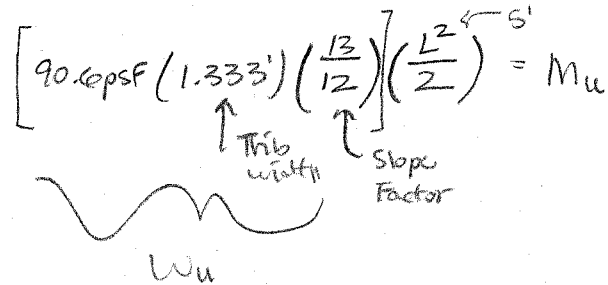 [90.6psf (1.333') (13/12)] (L²/2) = Mu
5'
Trib width
Slope Factor
Wu